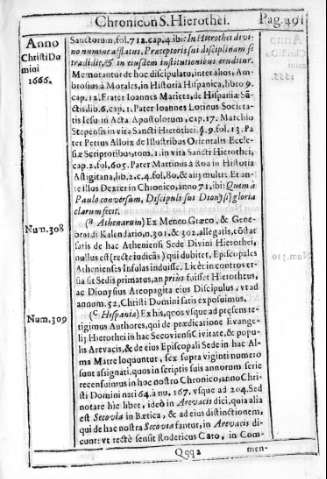 Chronicon S. Hierothei. Pag. 491
Anno
Christi Do
mini
1666.
Sanctorum, fol. 712. cap. 4. ibi: In Hierotheo divi-
no numine afflatus, Præceptoris sui disciplinam se
tradidit, & in eiusdem institutionibus eruditus.
Memorantur de hoc discipulato, inter alios, Am-
brosius à Morales, in Historia Hispanica, libro 9.
cap. 12. Frater Ioannes Marieta, de Hispaniæ Sã-
ctis lib. 6. cap. 11. Pater Ioannes Lorinus Societa-
tis Iesu in Acta Apostolorum, cap. 17. Melchio
Stepensis in vita Sancti Hierothei. §. 9. fol. 13. Pa-
ter Petrus Alloix de Illustribus Orientalis Eccle-
siæ Scriptoribus, tom. 1. in vita Sancti Hierothei,
cap. 2. fol. 605. Pater Martinus à Roa in Historia
Astigitana, lib. 2. c. 4. fol. 80, & alij multi. Et an-
te illos Dexter in Chronico, anno 71. ibi: Quem à
Paulo conversum, Discipulo suo Dionysij gloria
clarum fecit.
Num. 308
(ª Athenarum) Ex Meneo Græco, & Gene-
brardi Kalendario, n. 301. & 302. allegatis, cõstat
satis de hac Atheniensi Sede Divini Hierothei,
nullus est (recte iudicās) qui dubitet, Episcopales
Athenienses Insulas induisse. Licèt in controver-
sia sit Sedis primatus, an prius fuisset Hierotheus,
ac Dionysius Areopagita eius Discipulus, vt ad
annum. 52. Christi Domini satis exposuimus.
Num. 309
(ᶜ Hispania) Ex his, quos vsque ad præsens te-
tigimus Authores, qui de prædicatione Evange-
lij Hierothei in hac Secoviensi Civitate, & popu-
lis Arevacis, & de eius Episcopali Sede in hac Al-
ma Matre loquuntur, sex supra viginti numero
sunt assignati, quos in scriptis suis annorum serie
recensuimus in hac nostro Chronico, anno Chri-
sti Domini nati 64. à nu. 167. vsque ad 204. Sed
notare hic libet, ideò in Arevacis dici, quia alia
est Secovia in Bætica, & ad eius distinctionem,
qui de hac nostra Secovia fantur, in Arevacis di-
cunt: vt rectè sensit Rodericus Caro, in Com-
Qqq2 men-